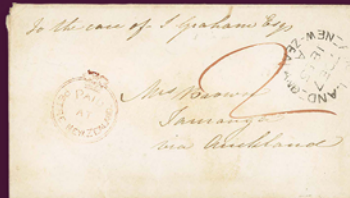 To the care of J Graham Esq
2
PAID
AT
NEW ZEALAND
NEW-ZEALAND
Mrs Brown
Tauranga
via Auckland